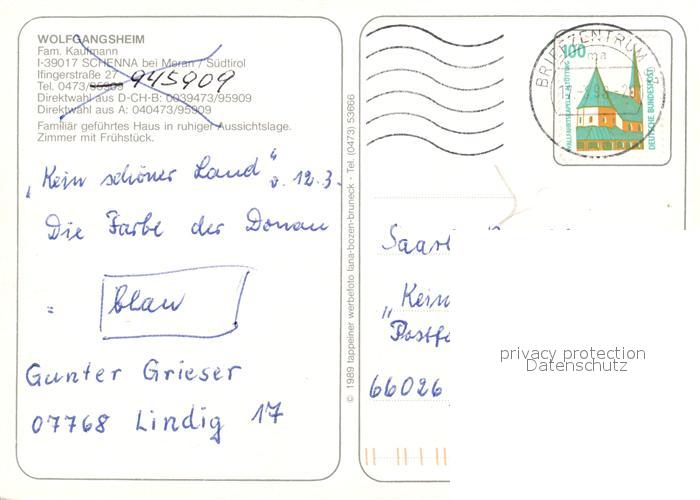 WOLFGANGSHEIM
Fam. Kaufmann
I-39017 SCHENNA bei Meran / Südtirol
Ifingerstraße 27
Tel. 0473/95909 945909
Direktwahl aus D-CH-B: 0039473/95909
Direktwahl aus A: 040473/95909
Familiär geführtes Haus in ruhiger Aussichtslage.
Zimmer mit Frühstück.
„Kein schöner Land" v. 12.3.
Die Farbe der Donau
= blau
Gunter Grieser
07768 Lindig 17
© 1989 tappeiner werbefoto lana-bozen-bruneck - Tel. (0473) 53666
BRIEFZENTRUM
100
WALLFAHRTSKAPELLE ALTÖTTING
DEUTSCHE BUNDESPOST
Saarl
„Kein
Postf
66026
privacy protection
Datenschutz